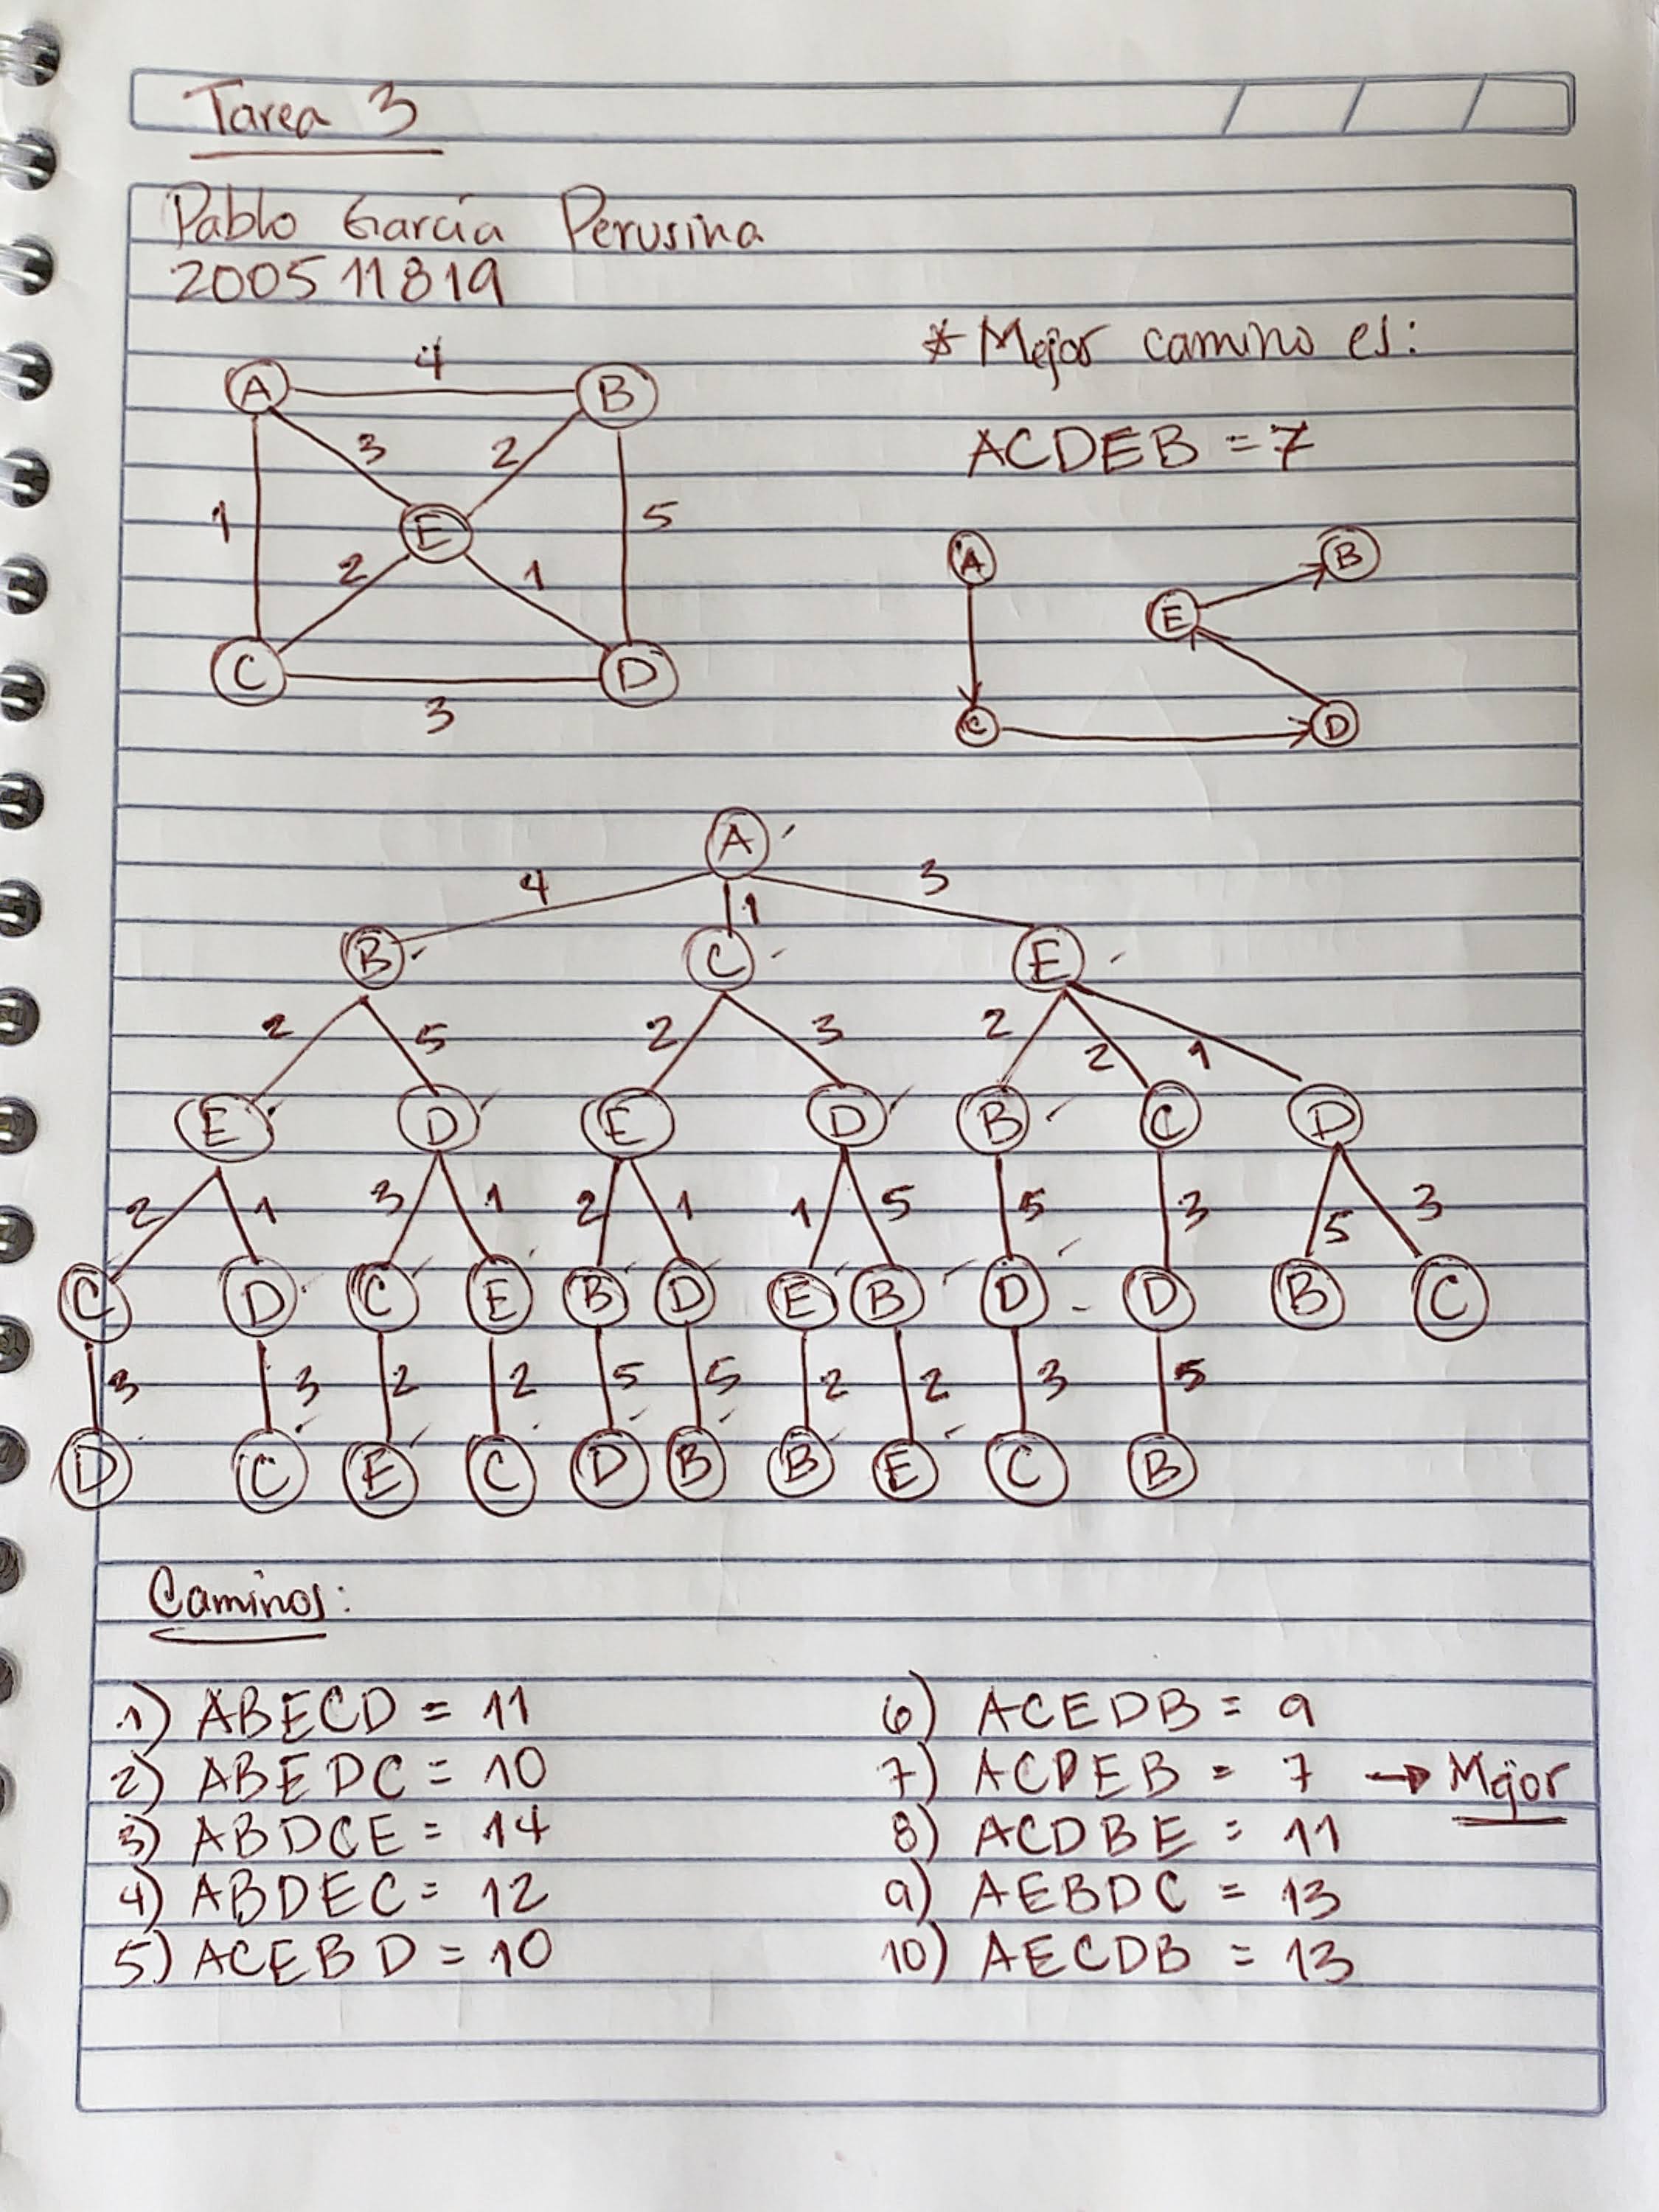 Tarea 3
Pablo García Perusina
200511819
* Mejor camino es:
ACDEB = 7
4
A B
3 2
1 E 5
2 1
C D
3
A B
E
C D
A
4 1 3
B C E
2 5 2 3 2 2 1
E D E D B C D
2 1 3 1 2 1 1 5 5 3 5 3
C D C E B D E B D D B C
3 3 2 2 5 5 2 2 3 5
D C E C D B B E C B
Caminos:
1) ABECD = 11
2) ABEDC = 10
3) ABDCE = 14
4) ABDEC = 12
5) ACEBD = 10
6) ACEDB = 9
7) ACDEB = 7 → Mejor
8) ACDBE = 11
9) AEBDC = 13
10) AECDB = 13